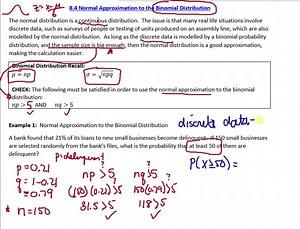 z = x-μ/σ
8.4 Normal Approximation to the Binomial Distribution
The normal distribution is a continuous distribution. The issue is that many real life situations involve
discrete data, such as surveys of people or testing of units produced on an assembly line, which are also
modelled by the normal distribution. As long as the discrete data is modelled by a binomial probability
distribution, and the sample size is big enough, then the normal distribution is a good approximation,
making the calculation easier.
Binomial Distribution Recall:
μ = np σ = √npq
CHECK: The following must be satisfied in order to use the normal approximation to the binomial
distribution:
np > 5 AND nq > 5
Example 1: Normal Approximation to the Binomial Distribution
discrete data-
A bank found that 21% of its loans to new small businesses become delinquent. If 150 small businesses
are selected randomly from the bank's files, what is the probability that at least 50 of them are
delinquent?
p: delinquent
P(X≥50) =
p = 0.21
q = 1-0.21
= 0.79
* n=150
? np > 5
(150)(0.21) > 5
31.5 > 5
✓
? nq > 5
150(0.79) > 5
118 > 5
✓